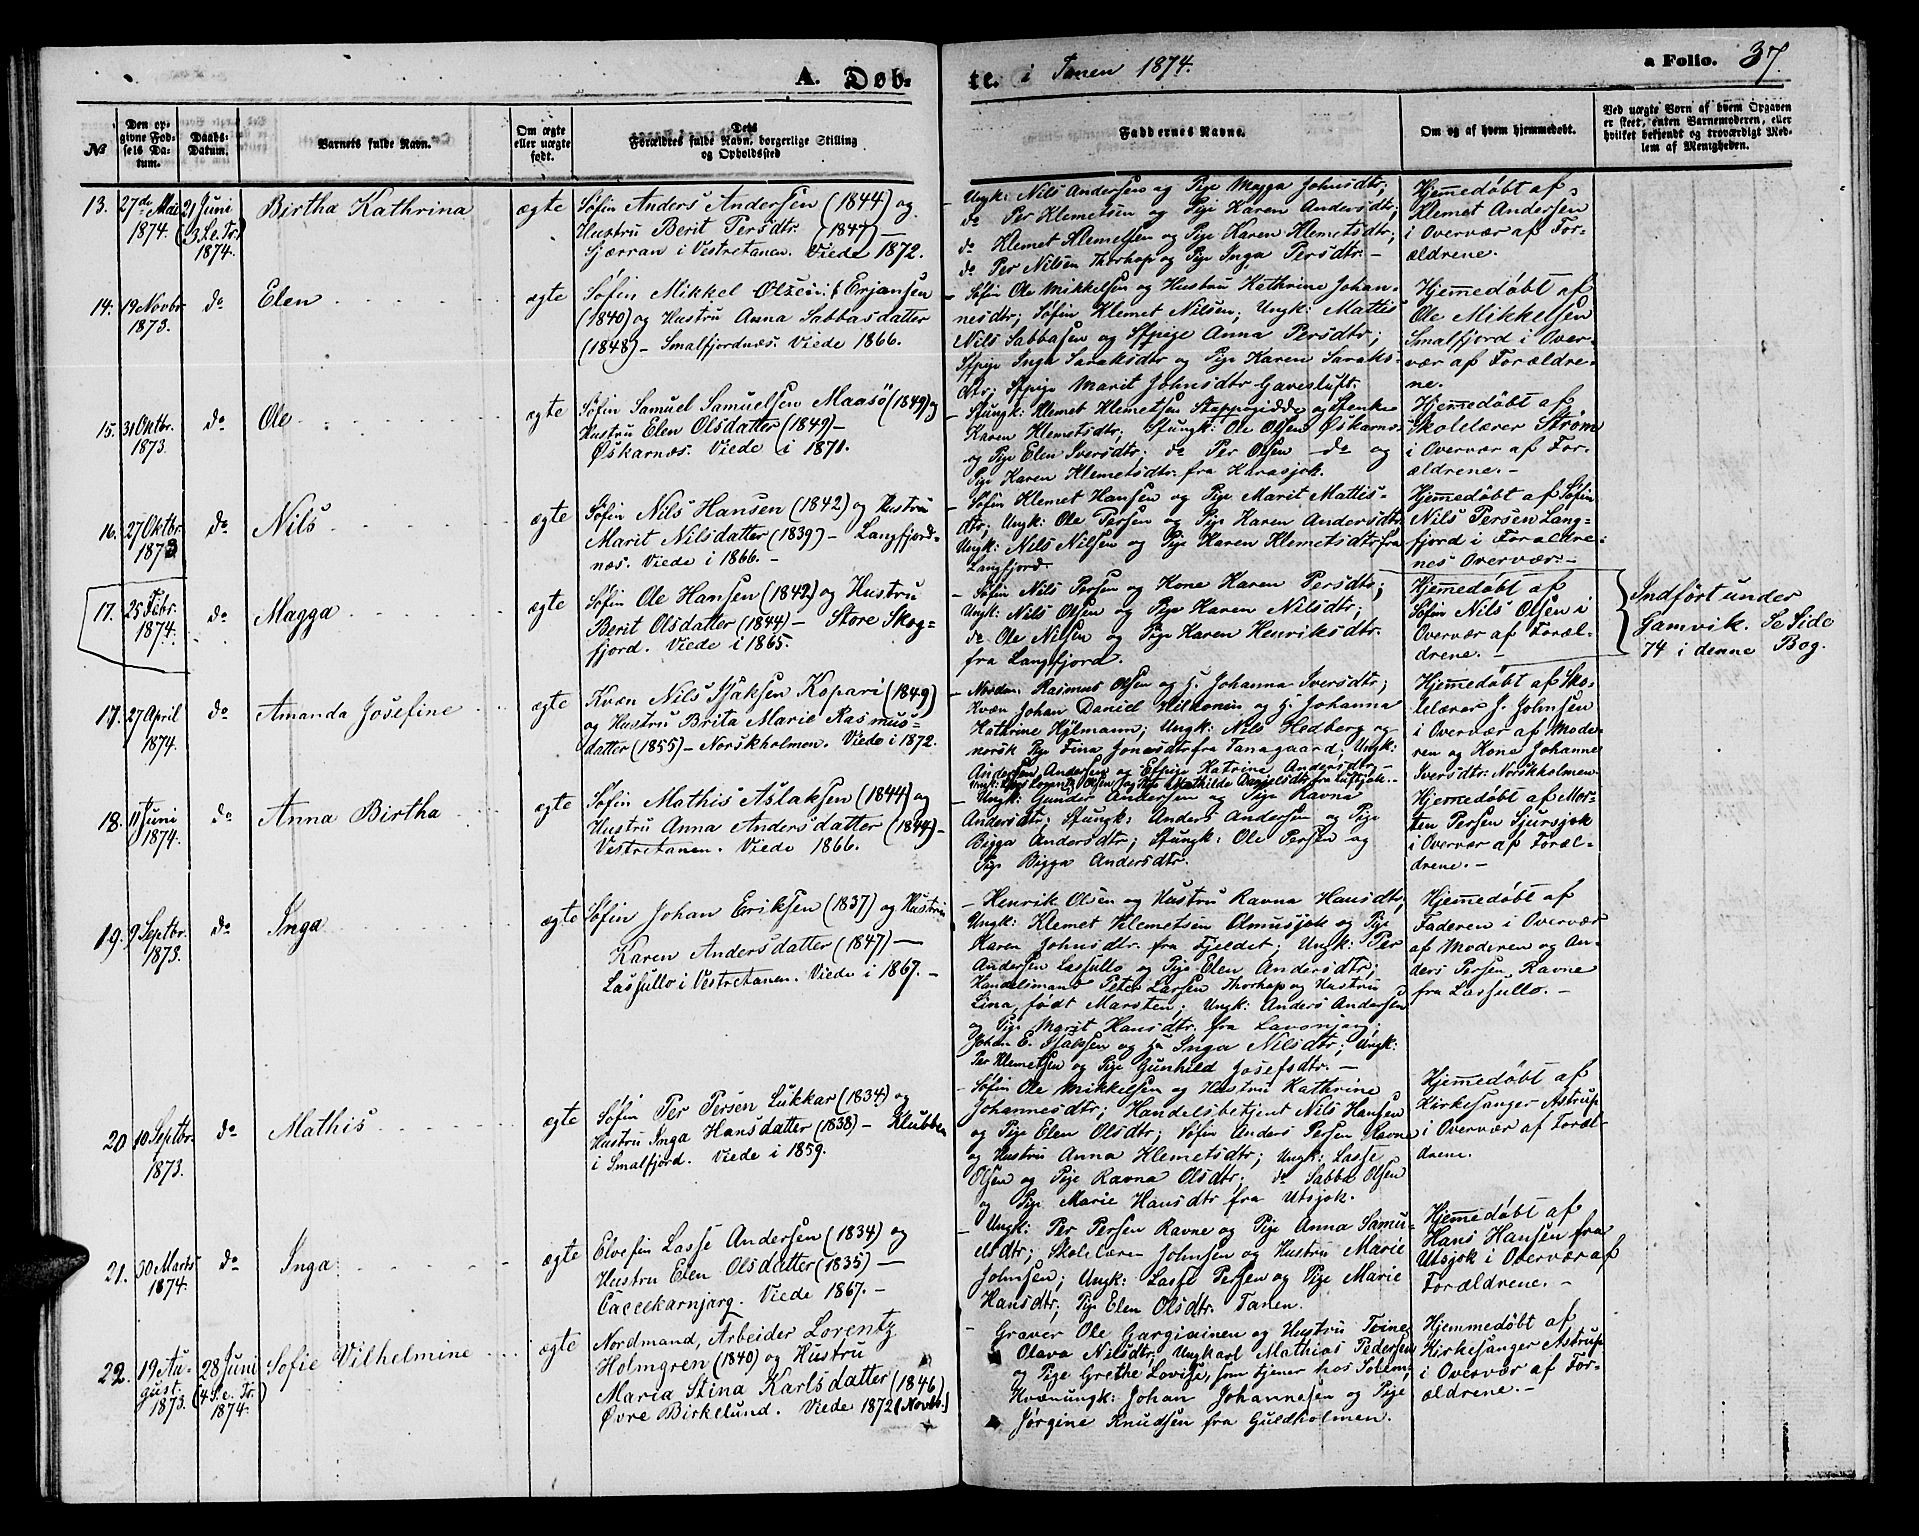 A. Døb-
te. i Tanen 1874.
a Folio. 37.
№
Den op-
givne Fød-
sels Da-
tum.
Daabs-
Datum.
Barnets fulde Navn.
Om ægte
eller uægte
født.
Dets
Forældres fulde Navn, borgerlige Stilling
og Opholdssted
Faddernes Navne.
Om og af hvem hjemmedøbt.
Ved uægte Børn af hvem Opgaven
er skeet, enten Barnemoderen, eller
hvilket bekjendt og troværdigt Med-
lem af Menigheden.
13.
27de Mai
1874.
21 Juni
(3 S. e. Tr.)
1874.
Birtha Kathrina
ægte
Søfin Anders Andersen (1844) og
Hustru Berit Persdtr. (1847) —
Gjærran i Vestretanen. Viede 1872.
Ungk: Nils Andersen og Pige Magga Johnsdtr;
do Per Klemetsen og Pige Karen Andersdtr;
do Klemet Klemetsen og Pige Karen Klemetsdtr;
do Per Nilsen Thorhop og Pige Inga Persdtr. —
Hjemmedøbt af
Klemet Andersen
i Overvær af For-
ældrene.
14.
19 Novbr
1873.
do
Elen
ægte
Søfin Mikkel Olsen Erjansen
(1840) og Hustru Anna Sabbasdatter
(1848) — Smalfjordnæs. Viede 1866.
— Søfin Ole Mikkelsen og Hustru Kathrine Johan-
nesdtr; Søfin Klemet Nilsen; Ungk: Mattis
Nils Sabbasen og Sfpige Anna Persdtr;
Sfpige Inga Saraksdtr og Pige Karen Saraks-
dtr; Sfpige Marit Johnsdtr Gavesluft.
Hjemmedøbt af
Ole Mikkelsen
Smalfjord i Over-
vær af Forældre-
ne.
15.
31 Oktbr.
1873.
do
Ole
ægte
Søfin Samuel Samuelsen Maasö (1849) og
Hustru Elen Olsdatter (1849) —
Øskarnæs. Viede i 1871.
— Sfungk: Klemet Klemetsen Stappogidde og Sfenke
Karen Klemetsdtr; Sfungk: Ole Olsen Øskarnæs
og Pige Elen Iversdtr; do Per Olsen do og
Pige Karen Klemetsdtr. fra Karasjok.
Hjemmedøbt af
Skolelærer Strøm
i Overvær af For-
ældrene. —
16.
27 Oktbr.
1873
do
Nils
ægte
Søfin Nils Hansen (1842) og Hustru
Marit Nilsdatter (1839) — Langfjord-
næs. Viede i 1866. —
— Søfin Klemet Hansen og Pige Marit Mattis-
dtr; Ungk: Ole Persen og Pige Karen Andersdtr
Ungk: Nils Nilsen og Pige Karen Klemetsdtr fra
Langfjord.
Hjemmedøbt af Søfin
Nils Persen Lang-
fjord i Forældre-
nes Overvær. —
17.
25 Febr.
1874.
do
Magga
ægte
Søfin Ole Hansen (1842) og Hustru
Berit Olsdatter (1844) — Store Skog-
fjord. Viede i 1865.
— Søfin Nils Persen og Kone Karen Persdtr;
Ungk: Nils Olsen og Pige Karen Nilsdtr;
do Ole Nilsen og Pige Karen Henriksdtr.
fra Langfjord.
Hjemmedøbt af
Søfin Nils Olsen i
Overvær af Foræl-
drene. —
Indført under
Gamvik. Se Side
74 i denne Bog.
17.
27 April
1874.
do
Amanda Josefine
ægte
Kvæn Nils Isaksen Kopari (1849)
og Hustru Brita Marie Rasmus-
datter (1855) — Norskholmen. Viede i 1872.
— Nordm: Rasmus Olsen og H. Johanna Iversdtr;
Kvæn Johan Daniel Wilkonin og H. Johanna
Kathrine Hjilmann; Ungk: Nils Hedberg og
norsk Pige Fina Jonasdtr fra Tanagaard; Ungk:
Andersen Andersen og Elfpige Katrine Andersdtr —
Hjemmedøbt af Sko-
lelærer J. Johnsen
i Overvær af Mode-
ren og Kone Johanne
Iversdtr: Norskholmen.
18.
11 Juni
1874.
do
Anna Birtha
ægte
Søfin Mathis Aslaksen (1844) og
Hustru Anna Andersdatter (1844) —
Vestretanen. Viede 1866.
— Ungk: Gunder Andersen og Pige Ravna
Andersdtr; Sfungk: Anders Andersen og Pige
Bigga Andersdtr; Sfungk: Ole Persen og
Pige Bigga Andersdtr.
Hjemmedøbt af Mor-
ten Persen Sjursjok
i Overvær af Foræl-
drene. —
19.
9 Septbr.
1873.
do
Inga
ægte
Søfin Johan Eriksen (1837) og Hustru
Karen Andersdatter (1847) —
Lassullo i Vestretanen. Viede i 1867. —
— Henrik Olsen og Hustru Ravna Hansdtr;
Ungk: Klemet Klemetsen Olmusjok og Pige
Karen Johnsdtr. fra Fjeldet; Ungk: Per
Andersen Lassullo og Pige Elen Andersdtr;
Handelsmand Peter Larsen Thorhop og Hustru
Lina, født Marsten; Ungk: Anders Andersen
og Pige Marit Hansdtr. fra Lavonjarg;
Johan E. Isaksen og Ha Inga Nilsdtr; Ungk:
Per Klemetsen og Pige Gunhild Josefsdtr. —
Hjemmedøbt af
Faderen i Overvær
af Moderen og An-
ders Persen Ravne
fra Lassullo. —
20
10 Septbr.
1873.
do
Mathis
ægte
Søfin Per Persen Lukkar (1834) og
Hustru Inga Hansdatter (1838) — Klubben
i Smalfjord. Viede i 1859.
— Søfin Ole Mikkelsen og Hustru Kathrine
Johannesdtr; Handelsbetjent Nils Hansen
og Pige Elen Olsdtr; Søfin Anders Persen Ravne
og Hustru Anna Klemetsdtr; Ungk: Lasse
Olsen og Pige Ravna Olsdtr; do Sabba Olsen
og Pige Marie Hansdtr fra Utsjok.
Hjemmedøbt af
Kirkesanger Astrup
i Overvær af Foræl-
drene.
21.
30 Marts
1874.
do
Inga
ægte
Elvefin Lasse Andersen (1834) og
Hustru Elen Olsdatter (1835) —
Caccekarnjarg. Viede 1867. —
— Ungk: Per Persen Ravne og Pige Anna Samu-
elsdtr; Skolelærer Johnsen og Hustru Marie
Johnsen; Ungk: Lasse Persen og Pige Marie
Hansdtr; Pige Elen Olsdtr. Tanen.
Hjemmedøbt af
Hans Hansen fra
Utsjok i Overvær af
Forældrene. —
22.
19 Au-
gust.
1873.
28 Juni
(4 S. e. Tr.)
1874.
Sofie Vilhelmine
ægte
Nordmand, Arbeider Lorentz
Holmgren (1840) og Hustru
Maria Stina Karlsdatter (1846)
Øvre Birkelund. Viede 1872 (Novbr.)
— Graver Ole Gargiainen og Hustru Trine
Olava Nilsdtr; Ungkarl Mathias Pedersen
og Pige Grethe Lovise, som tjener hos Solem;
Kvænungk: Johan Johannesen og Pige
Jørgine Knudsen fra Guldholmen.
Hjemmedøbt af
Kirkesanger Astrup
i Overvær af For-
ældrene. —